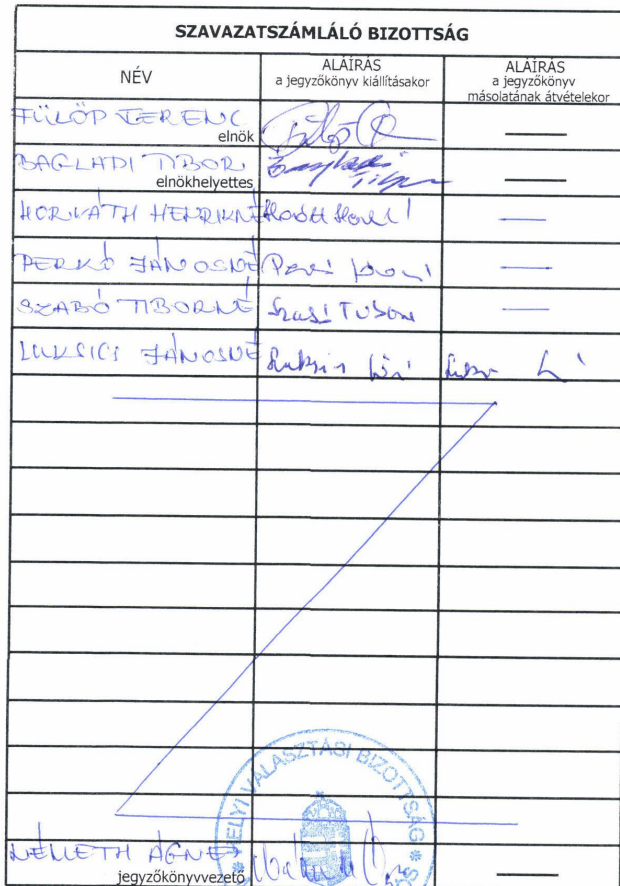 SZAVAZATSZÁMLÁLÓ BIZOTTSÁG
NÉV
ALÁÍRÁS
a jegyzőkönyv kiállításakor
ALÁÍRÁS
a jegyzőkönyv
másolatának átvételekor
FÜLÖP FERENC
elnök
BAGLADI TIBOR
elnökhelyettes
HORVÁTH HENRIKNÉ
PERKÓ JÁNOSNÉ
SZABÓ TIBORNÉ
LUKSICS JÁNOSNÉ
HELYI VÁLASZTÁSI BIZOTTSÁG
NÉMETH ÁGNES
jegyzőkönyvvezető